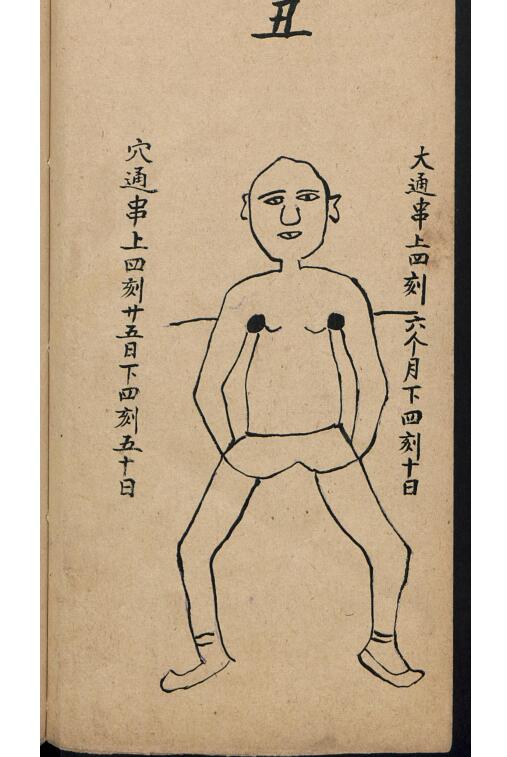 丑
大通串上四刻六个月下四刻十日
穴通串上四刻廿五日下四刻五十日